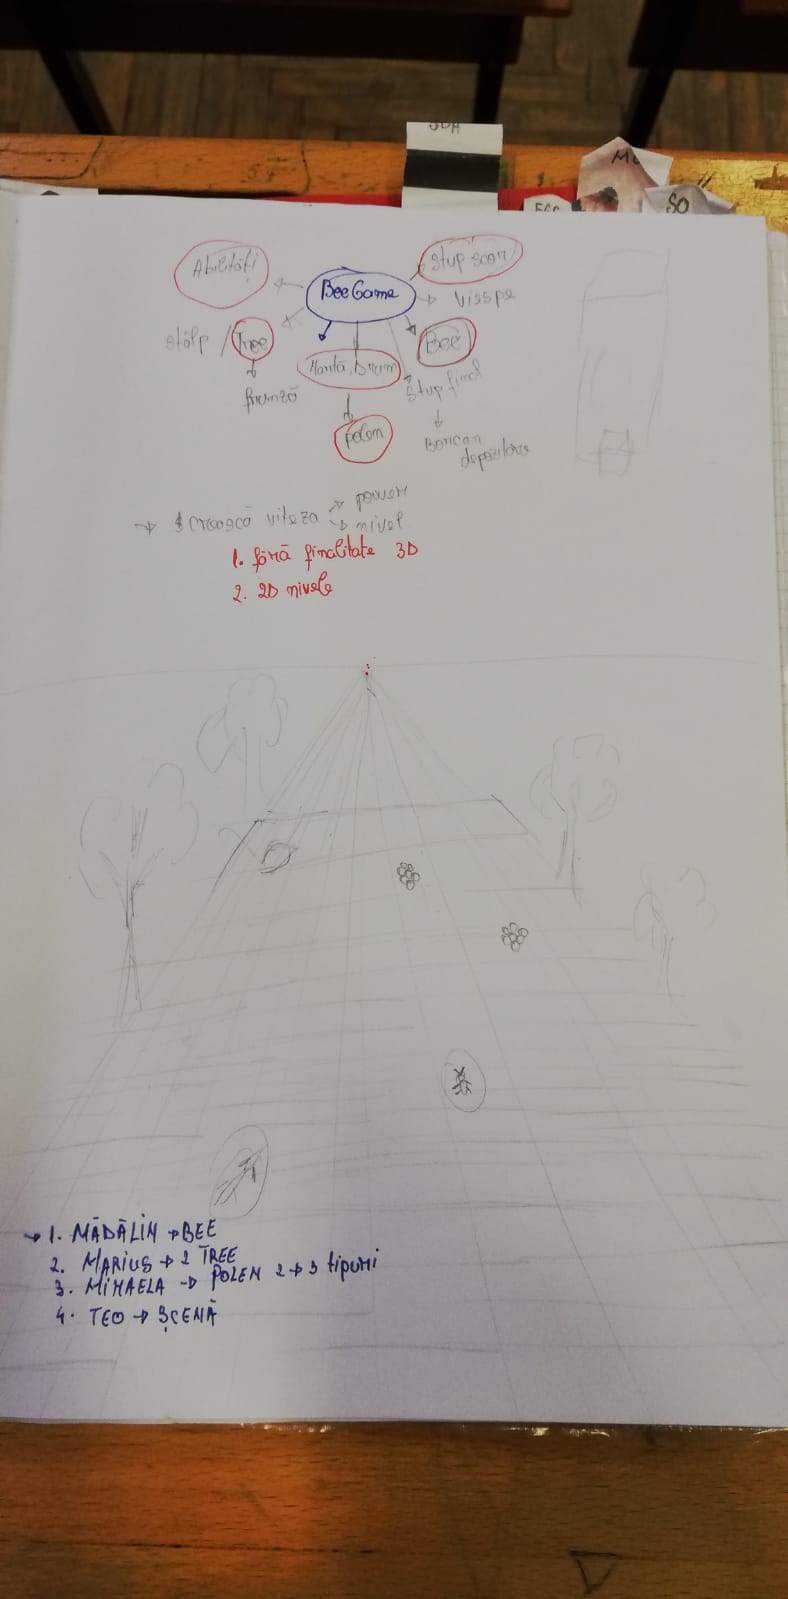 SO
Abilități
BeeGame
Stup scor
Viespe
stâlp / Tree
Bee
Hartă, Drum
Stup final
frunză
polen
Borcan
depozitare
→ să crească viteza → poweri
→ nivel
1. fără finalitate 3D
2. 2D nivele
→ 1. MĂDĂLIN → BEE
2. MARIUS → 2 TREE
3. MIHAELA → POLEN 2 → 3 tipuri
4. TEO → SCENĂ